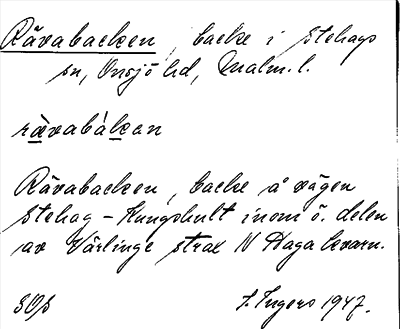 Rävabacken, backe i Stehags
sn, Onsjö hd, Malm. l.
rävabákan
Rävabacken, backe å vägen
Stehag - Kungshult inom ö. delen
av Värlinge strax N Haga kvarn.
SOS
I. Ingers 1947.